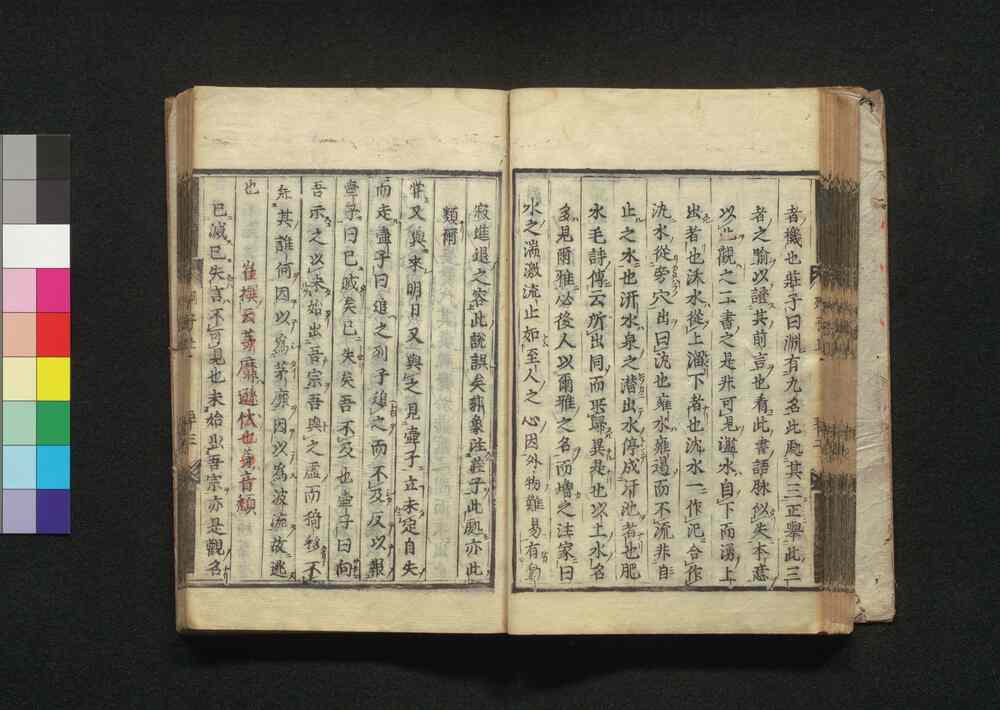 者機也莊子曰淵有九名此處其三正舉此三
者之喻以證其前言也看此書語脉似失本意
以此觀之二書之是非可見濫水自下而湧上
出者也沃水從上溜下者也沈水一作氿合作
氿水從旁穴出曰氿也雍水壅遏而不流非自
止之水也汧水泉之潛出水停成汙池者也肥
水毛詩傳云所出同而所歸異是也以上水名
多見爾雅必後人以爾雅之名而增之注家曰
水之湍激流止如至人之心因外物難易有動
寂進退之容此說誤矣非象注莊子此處亦此
類爾
又與來明日又與之見壺子立未定自失
而走壺子曰追之列子追之而不及反以報
壺子曰已滅矣已失矣吾不及也壺子曰向
吾示之以未始出吾宗吾與之虛而猗移不
知其誰何因以爲茅靡因以爲波流故逃
也
崔撰云茅靡遜伏也茅音頹
已滅已失言不可見也未始出吾宗亦是觀名